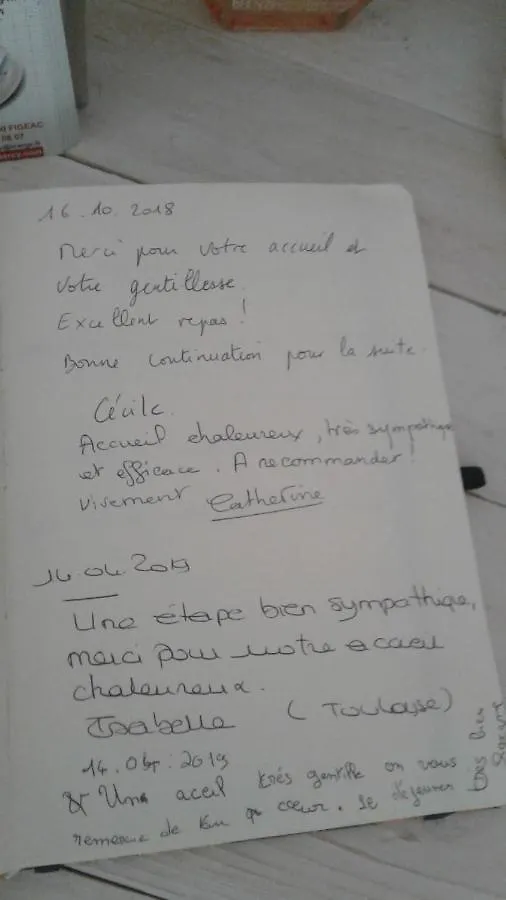 FIGEAC
16.10.2018
Merci pour votre accueil et
votre gentillesse.
Excellent repas !
Bonne continuation pour la suite.
Cécile.
Accueil chaleureux, très sympathique
et efficace. A recommander !
vivement Catherine
14.04.2019
Une étape bien sympathique,
merci pour votre acceuil
chaleureux.
Isabelle (Toulouse)
14.04.2019
Une aceil très gentille on vous
remercie de cœur. le déjeuner
très bien